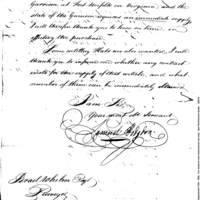 Garrison at Fort Norfolk in Virginia, and the
state of the Garrison requires an immediate supply,
I will therefore thank you to lose no time in
effecting the purchase.
Some artillery Hats are also wanted, I will
thank you to inform me whether any contract
exists for the supply of this article, and what
number of them can be immediately obtained
I am Sir
Your most Ob Servant
Samuel Hodgdon
Israel Whelen Esq
Purveyor